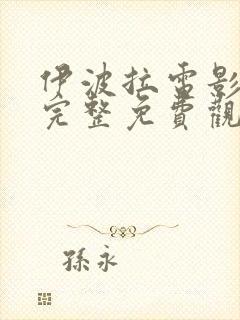 伊波拉雷影
完整免費觀
孫永